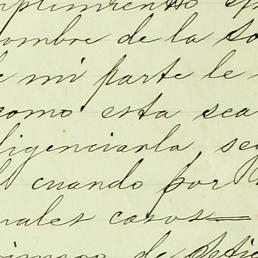 mplimiento
ombre de la so
e mi parte le
como esta sea
ligenciarla, se
cuando por
nales casos
de